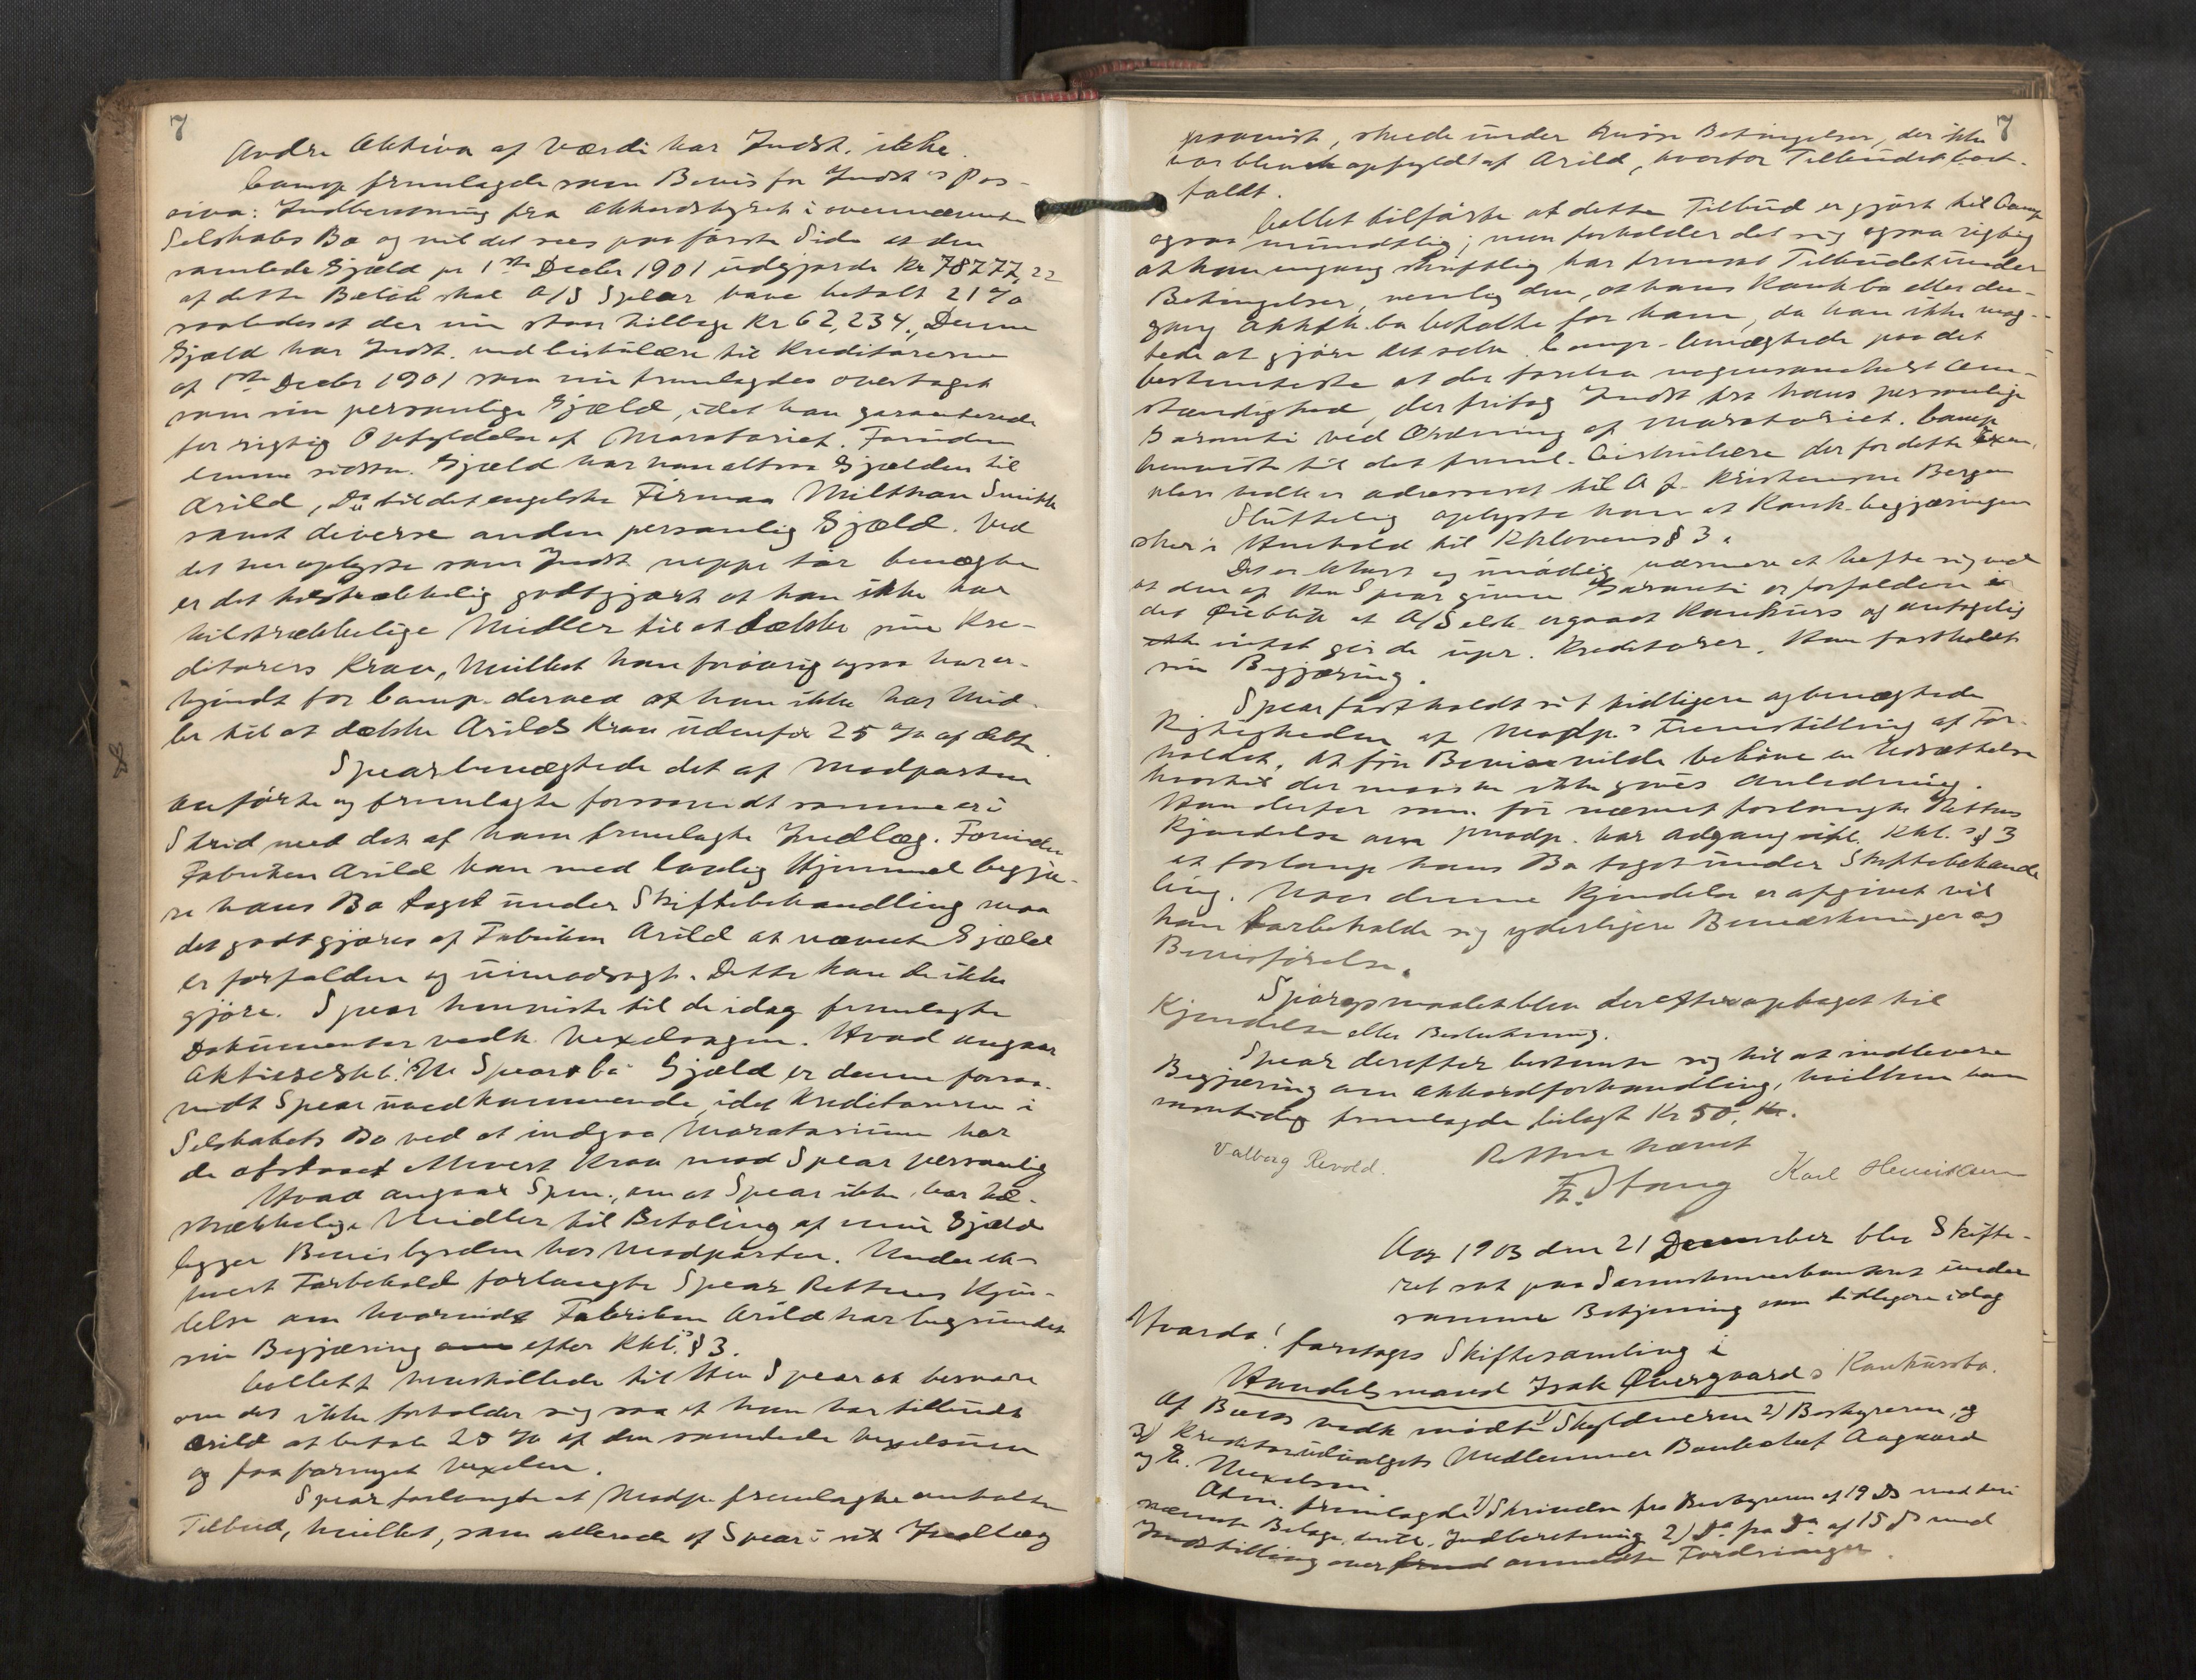 7
Andre Aktiva af Værdi har Indst. ikke.
Camp. fremlagde som Bevis for Indst's Pas-
siva: Indberetning fra Akkordstyret i ovennævnte
Selskabs Bo og vil det sees paa første Side at den
samlede Gjæld pr 1ste Decbr 1901 udgjorde Kr 78777,22
af dette Beløb skal A/S Spear have betalt 21 %
saaledes at der nu staar tilbage Kr 62,234,, Denne
Gjæld har Indst. ved Cirkulære til Kreditorerne
af 1ste Decbr 1901 som nu fremlagdes overtaget
som sin personlige Gjæld, idet han garanterede
for rigtig Opfyldelse af Moratoriet. Foruden
denne sidste Gjæld har han altsaa Gjælden til
Arild, Do til det engelske Firma Smith
samt diverse anden personlig Gjæld. Ved
det her oplyste som Indst. neppe tør benægte
er det tilstrækkelig godtgjort at han ikke har
tilstrækkelige Midler til at dække sine Kre-
ditorers Krav, hvilket han forøvrig ogsaa har er-
kjendt for Camp. derved at han ikke har Mid-
ler til at dække Arilds Krav udenfor 25 % af dette.
Spear benægtede det af Modparten
anførte og fremlagte forsaavidt samme er i
Strid med det af ham fremlagte Indlæg. Forinden
Fabriken Arild kan med lovlig Hjemmel begjæ-
re hans Bo taget under Skiftebehandling maa
det godtgjøres af Fabriken Arild at nævnte Gjæld
er forfalden og uimodsagt. Dette kan de ikke
gjøre. Spear henviste til de idag fremlagte
Dokumenter vedk. Vexelsagen. Hvad angaar
Aktieselsk. Hr Spear & Co Gjæld er denne forsaa-
vidt Spear uvedkommende, idet Kreditorerne i
Selskabets Bo ved at indgaa Moratorium har
de afstaaet ethvert Krav mod Spear personlig
Hvad angaar Spm., om at Spear ikke har til-
strækkelige Midler til Betaling af sin Gjæld
ligger Bevisbyrden hos Modparten. Under et-
hvert Forbehold forlangte Spear Rettens Kjen-
delse om hvorvidt Fabriken Arild har begrundet
sin Begjæring efter Kkl.s § 3.
Collett henstillede til Hr Spear at besvare
om det ikke forholder sig saa at han har tilbudt
Arild at betale 25 % af den samlede Vexelsum
og faa fornyet Vexelen.
Spear forlangte at Modp. fremlagte omtalte
Tilbud, hvilket, som allerede af Spear i sit Indlæg
7
paavist, skede under visse Betingelser, der ikke
var blevet opfyldt af Arild, hvorfor Tilbudet bort-
faldt.
Collet tilføiede at dette Tilbud er gjort til Camp
ogsaa mundtlig; men forholder det sig ogsaa rigtig
at han engang skriftlig har fremsat Tilbudet under
Betingelser, nemlig den, at hans Konkbo eller den-
gang Akkdh.bo betalte for ham, da han ikke mag-
tede at gjøre det selv. Camp. benægtede paa det
bestemteste at der forelaa nogensomhelst Om-
stændighed, der fritog Indst fra hans personlige
Garanti ved Ordning af Moratoriet. Camp
henviste til det freml. Cirkulære der for dette Exem-
plars vedk er adresseret til A J. Kristensen Bergen
Sluttelig oplyste han at Konk.begjæringen
sker i Henhold til Kklovens § 3.
Det er klart og unødig nærmere at hefte sig ved
at den af Hr Spear givne Garanti er forfalden i
det Øieblik at A/Selsk. ergaaet Konkurs og antagelig
intet gir de upr. Kreditorer. Han fastholdt
sin Begjæring.
Spear fastholdt sit tidligere og benægtede
Rigtigheden af Modp.s Fremstilling af For-
holdet. At føre Bevis vilde behøve en Udsættelse
hvortil der maaske ikke gives Anledning.
Han derfor som før nævnt forlangte Rettens
Kjendelse om Modp. har Adgang ifl. Kkl.s § 3
at forlange hans Bo taget under Skiftebehand-
ling. Naar denne Kjendelse er afgivet vil
han forbeholde sig yderligere Bemærkninger og
Bevisførelse.
Spørgsmaalet blev derefter optaget til
Kjendelse eller Beslutning.
Spear derefter bestemte sig til at indlevere
Begjæring om Akkordforhandling, hvilken han
samtidig fremlagde bilagt Kr 50,
Retten hævet
Valborg Revold.
Fr. Stang
Karl Henriksen
Aar 1903 den 21 December blev Skifte-
ret sat paa Sorenskriverkontoret under
samme Betjening som tidligere idag
Hvorda!
foretoges Skiftesamling i
Handelsmand Isak Overgaards Konkursbo.
Af Boets vedk mødte 1) Skyldneren 2) Bestyreren, og
3) Kreditorudvalgets Medlemmer Bankchef Aagaard
og E.
Adm. fremlagde 1) Skrivelse fra Bestyreren af 19 Ds med deri
nævnte Bilage, Indberetning 2) Do fra Do af 15 Ds med
Indstilling over anmeldte Fordringer.